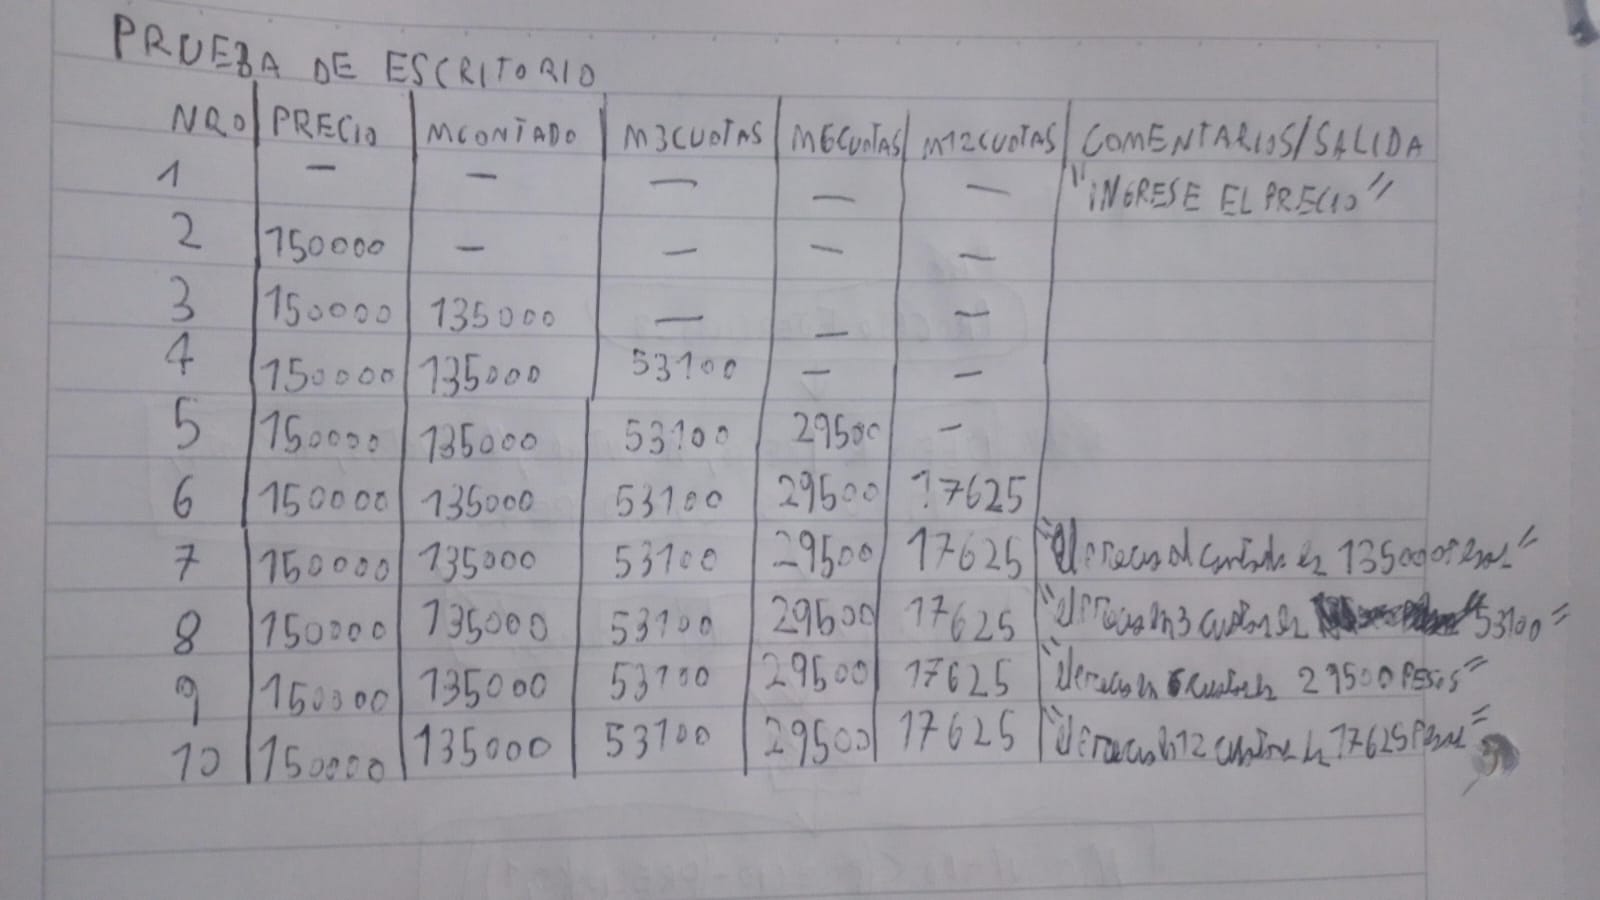 PRUEBA DE ESCRITORIO
NRO PRECIO MCONTADO M3CUOTAS M6CUOTAS M12CUOTAS COMENTARIOS/SALIDA
1 — — — — — "INGRESE EL PRECIO"
2 150000 — — — —
3 150000 135000 — — —
4 150000 135000 53100 — —
5 150000 135000 53100 29500 —
6 150000 135000 53100 29500 17625
7 150000 135000 53100 29500 17625 "el precio al contado es 135000 pesos"
8 150000 135000 53100 29500 17625 "el precio en 3 cuotas es 53100"
9 150000 135000 53100 29500 17625 "el precio en 6 cuotas es 29500 PESOS"
10 150000 135000 53100 29500 17625 "el precio en 12 cuotas es 17625 pesos"